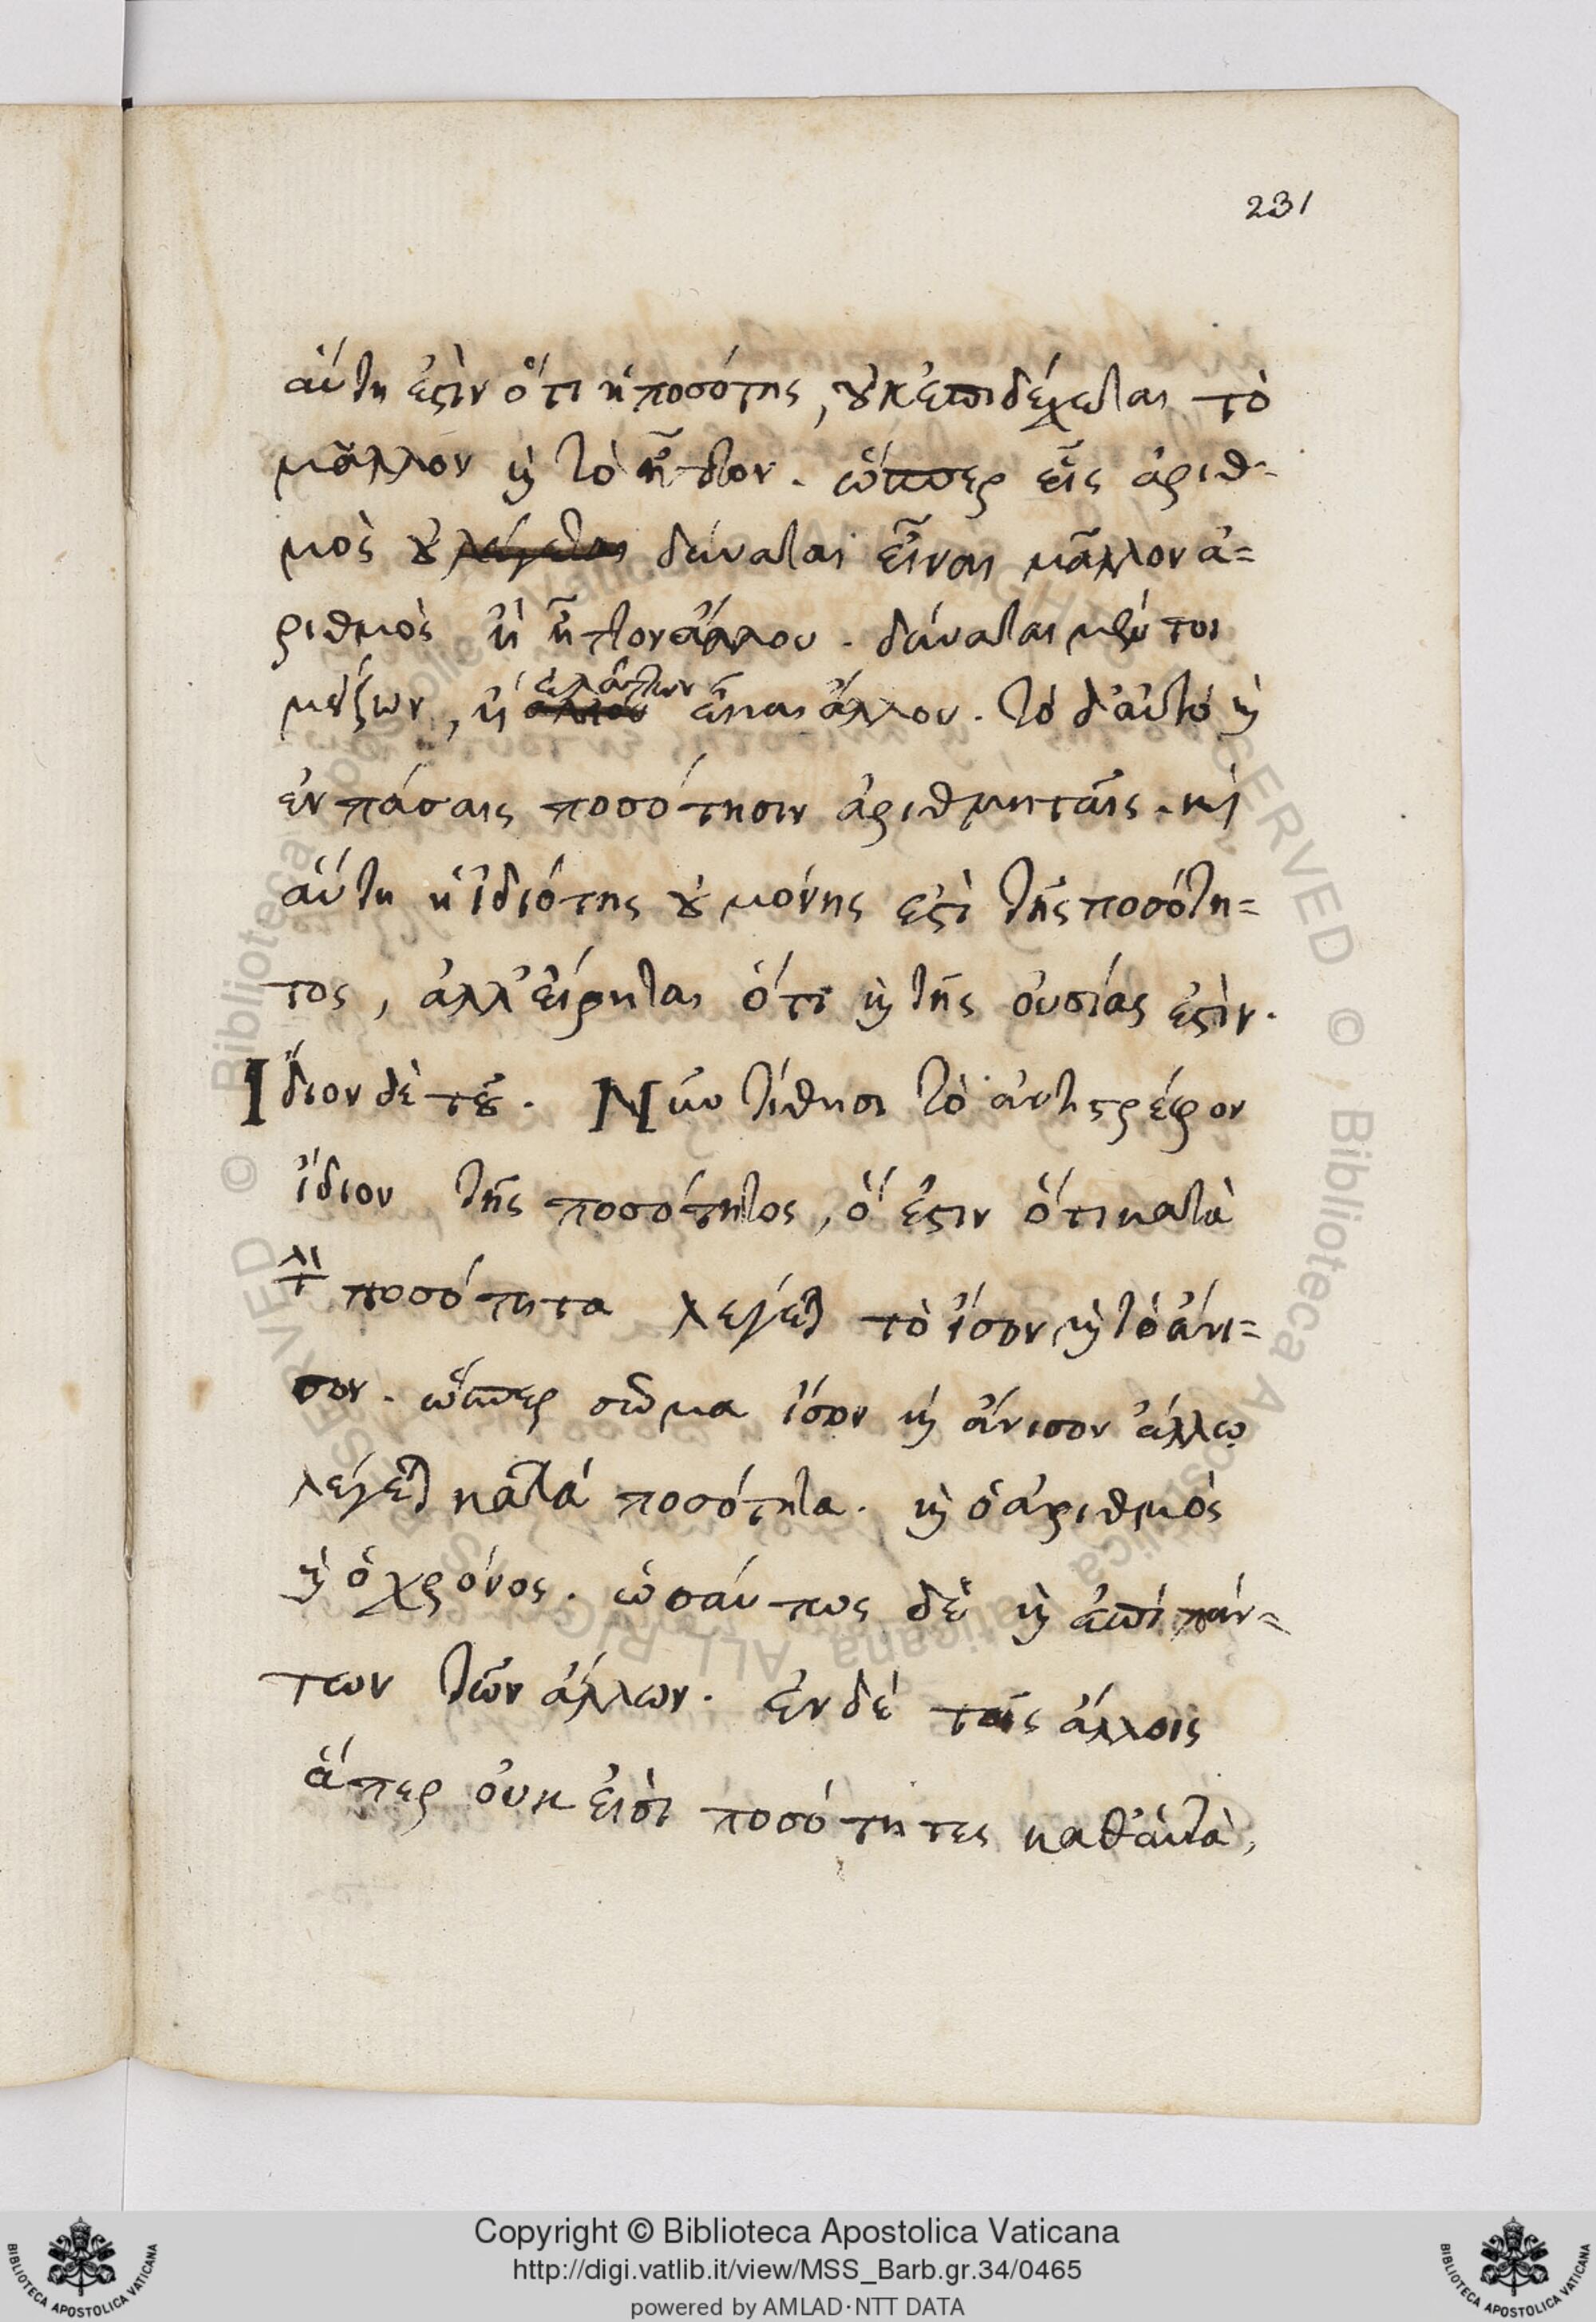 231
αὕτη ἐστὶν ὅτι ἡ ποσότης, οὐκ ἐπιδέχεται τὸ
μᾶλλον καὶ τὸ ἧττον. ὥσπερ εἷς ἀριθ-
μὸς οὐ λέγεται δύναται εἶναι μᾶλλον ἀ=
ριθμὸς ἢ ἧττον ἄλλου. δύναται μέντοι
μείζων, ἢ ἐλάττων εἶναι ἄλλου. τὸ δ' αὐτό καὶ
ἐν πάσαις ποσότησιν ἀριθμηταῖς. καὶ
αὕτη ἡ ἰδιότης οὐ μόνης ἐστὶ τῆς ποσότη=
τος, ἀλλ' εἴρηται ὅτι καὶ τῆς οὐσίας ἐστὶν.
Ἴδιον δὲ τοῦ. Νῦν τίθησι τὸ ἀντιστρέφον
ἴδιον τῆς ποσότητος, ὅ ἐστιν ὅτι κατὰ
τὴν ποσότητα λέγεται τὸ ἴσον καὶ τὸ ἄνι=
σον. ὥσπερ σῶμα ἴσον καὶ ἄνισον ἄλλῳ
λέγεται κατὰ ποσότητα. καὶ ὁ ἀριθμὸς
καὶ ὁ χρόνος. ὡσαύτως δὲ καὶ ἐπὶ πάν=
των τῶν ἄλλων. ἐν δὲ τοῖς ἄλλοις
ἅπερ οὐκ εἰσὶ ποσότητες καθ' αὑτὰ,
Copyright © Biblioteca Apostolica Vaticana
http://digi.vatlib.it/view/MSS_Barb.gr.34/0465
powered by AMLAD·NTT DATA
BIBLIOTECA APOSTOLICA VATICANA
BIBLIOTECA APOSTOLICA VATICANA